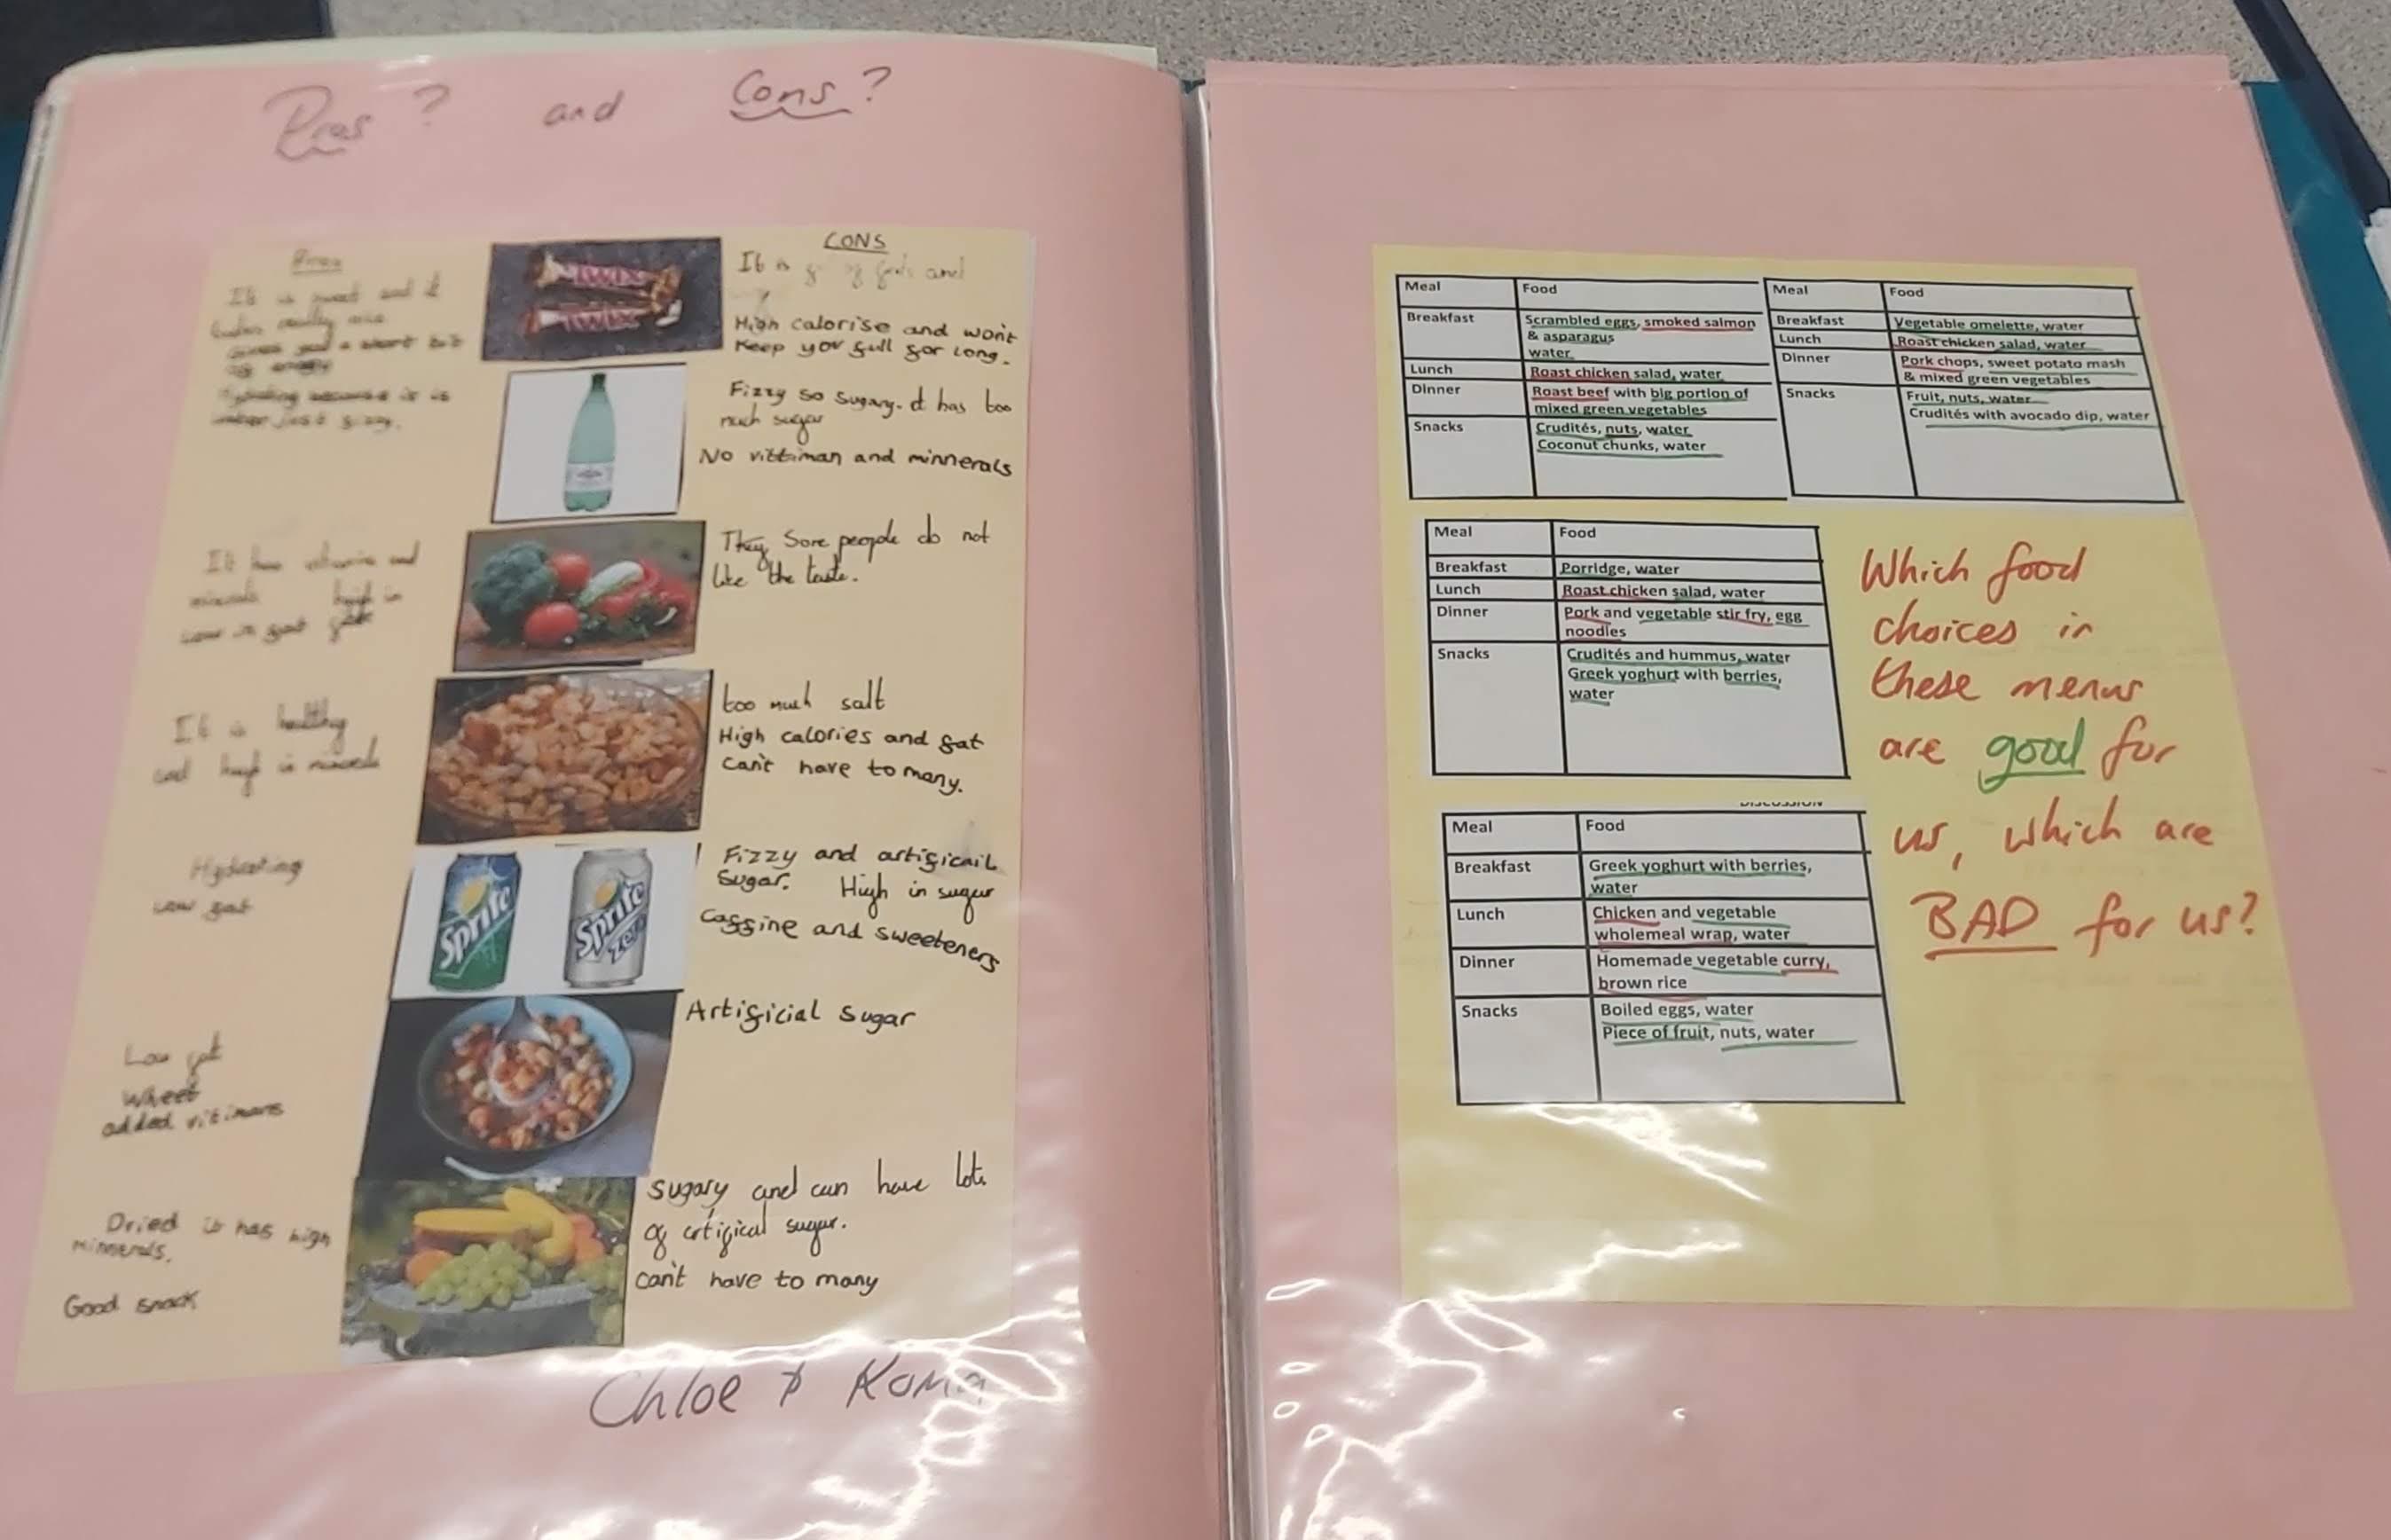 Pros ? and Cons ?
Pros
It is sweet and it
tastes really nice
gives you a short bit
of energy
Hydrating because it is
water just fizzy.
It has vitamins and
minerals high in
Low in fat
It is healthy
and high in minerals
Hydrating
Low fat
Low fat
Wheet
added vitimans
Dried it has high
minnerals.
Good snack
TWIX
TWIX
Sprite
Sprite
zero
CONS
It is and
High calorise and won't
Keep you full for long.
Fizzy so sugary. it has too
much sugar
No vittiman and minnerals
They Some people do not
like the taste.
too much salt
High calories and fat
Can't have to many.
Fizzy and artificail
Sugar. High in sugar
Caffine and sweeteners
Artificial sugar
sugary and can have lots
of artifical sugar.
can't have to many
Chloe &
Meal Food
Breakfast Scrambled eggs, smoked salmon
& asparagus
water
Lunch Roast chicken salad, water
Dinner Roast beef with big portion of
mixed green vegetables
Snacks Crudités, nuts, water
Coconut chunks, water
Meal Food
Breakfast Vegetable omelette, water
Lunch Roast chicken salad, water
Dinner Pork chops, sweet potato mash
& mixed green vegetables
Snacks Fruit, nuts, water
Crudités with avocado dip, water
Meal Food
Breakfast Porridge, water
Lunch Roast chicken salad, water
Dinner Pork and vegetable stir fry, egg
noodles
Snacks Crudités and hummus, water
Greek yoghurt with berries,
water
Meal Food
Breakfast Greek yoghurt with berries,
water
Lunch Chicken and vegetable
wholemeal wrap, water
Dinner Homemade vegetable curry,
brown rice
Snacks Boiled eggs, water
Piece of fruit, nuts, water
Which food
choices in
these menus
are good for
us, which are
BAD for us?